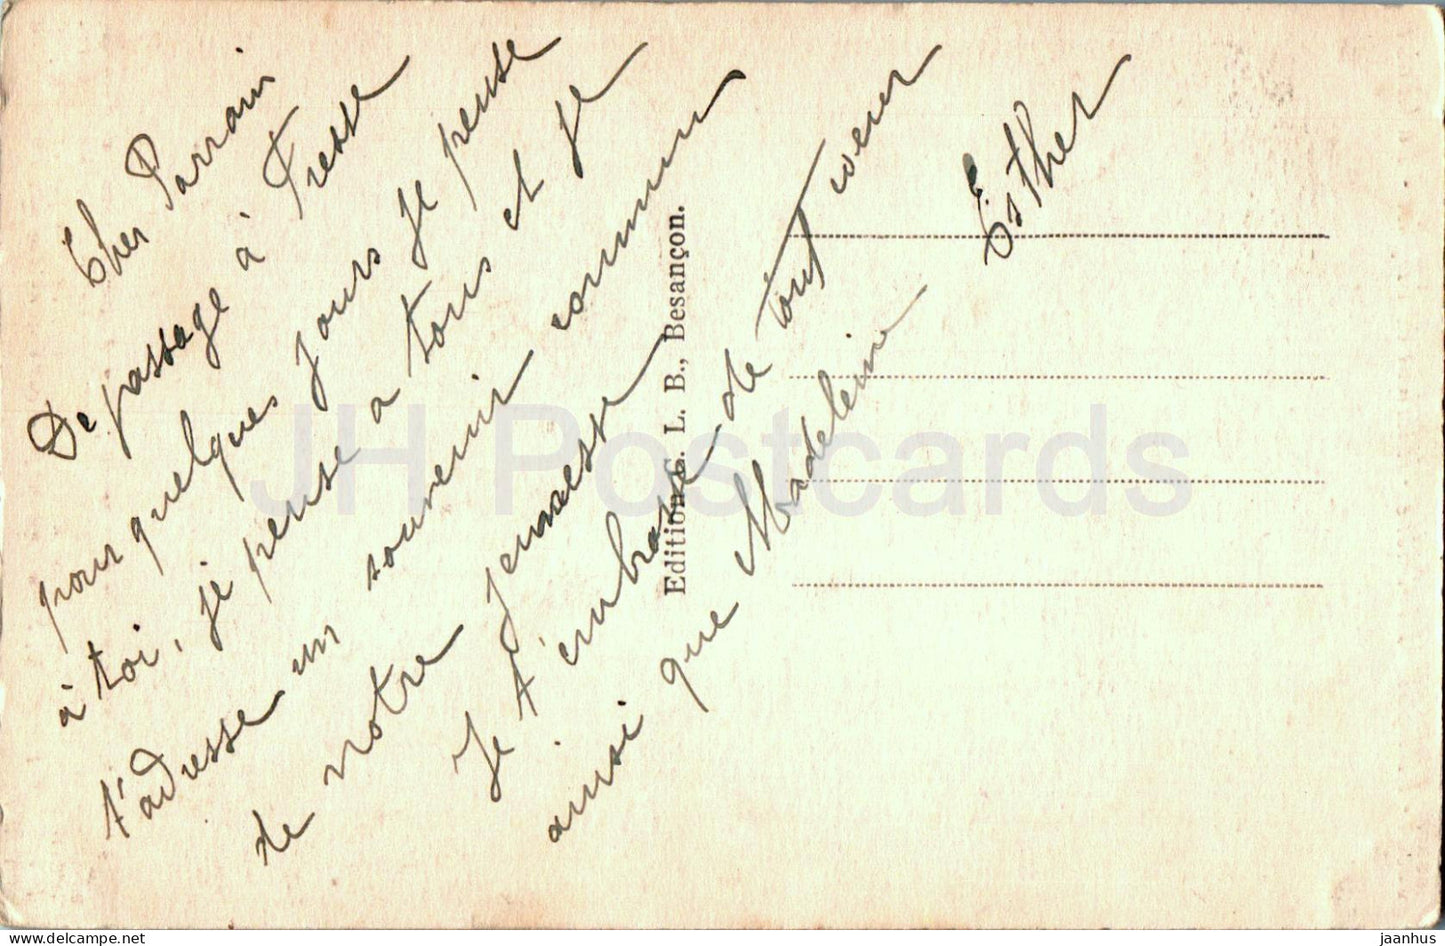 Cher Parrain
De passage à Fresse
pour quelques jours je pense
à toi, je pense a tous et je
t'adresse un souvenir commun
de notre jeunesse
Je t'embrasse de tout coeur
ainsi que Madeleine
Esther
Edition C. L. B., Besançon.
JH Postcards
www.delcampe.net
jaanhus